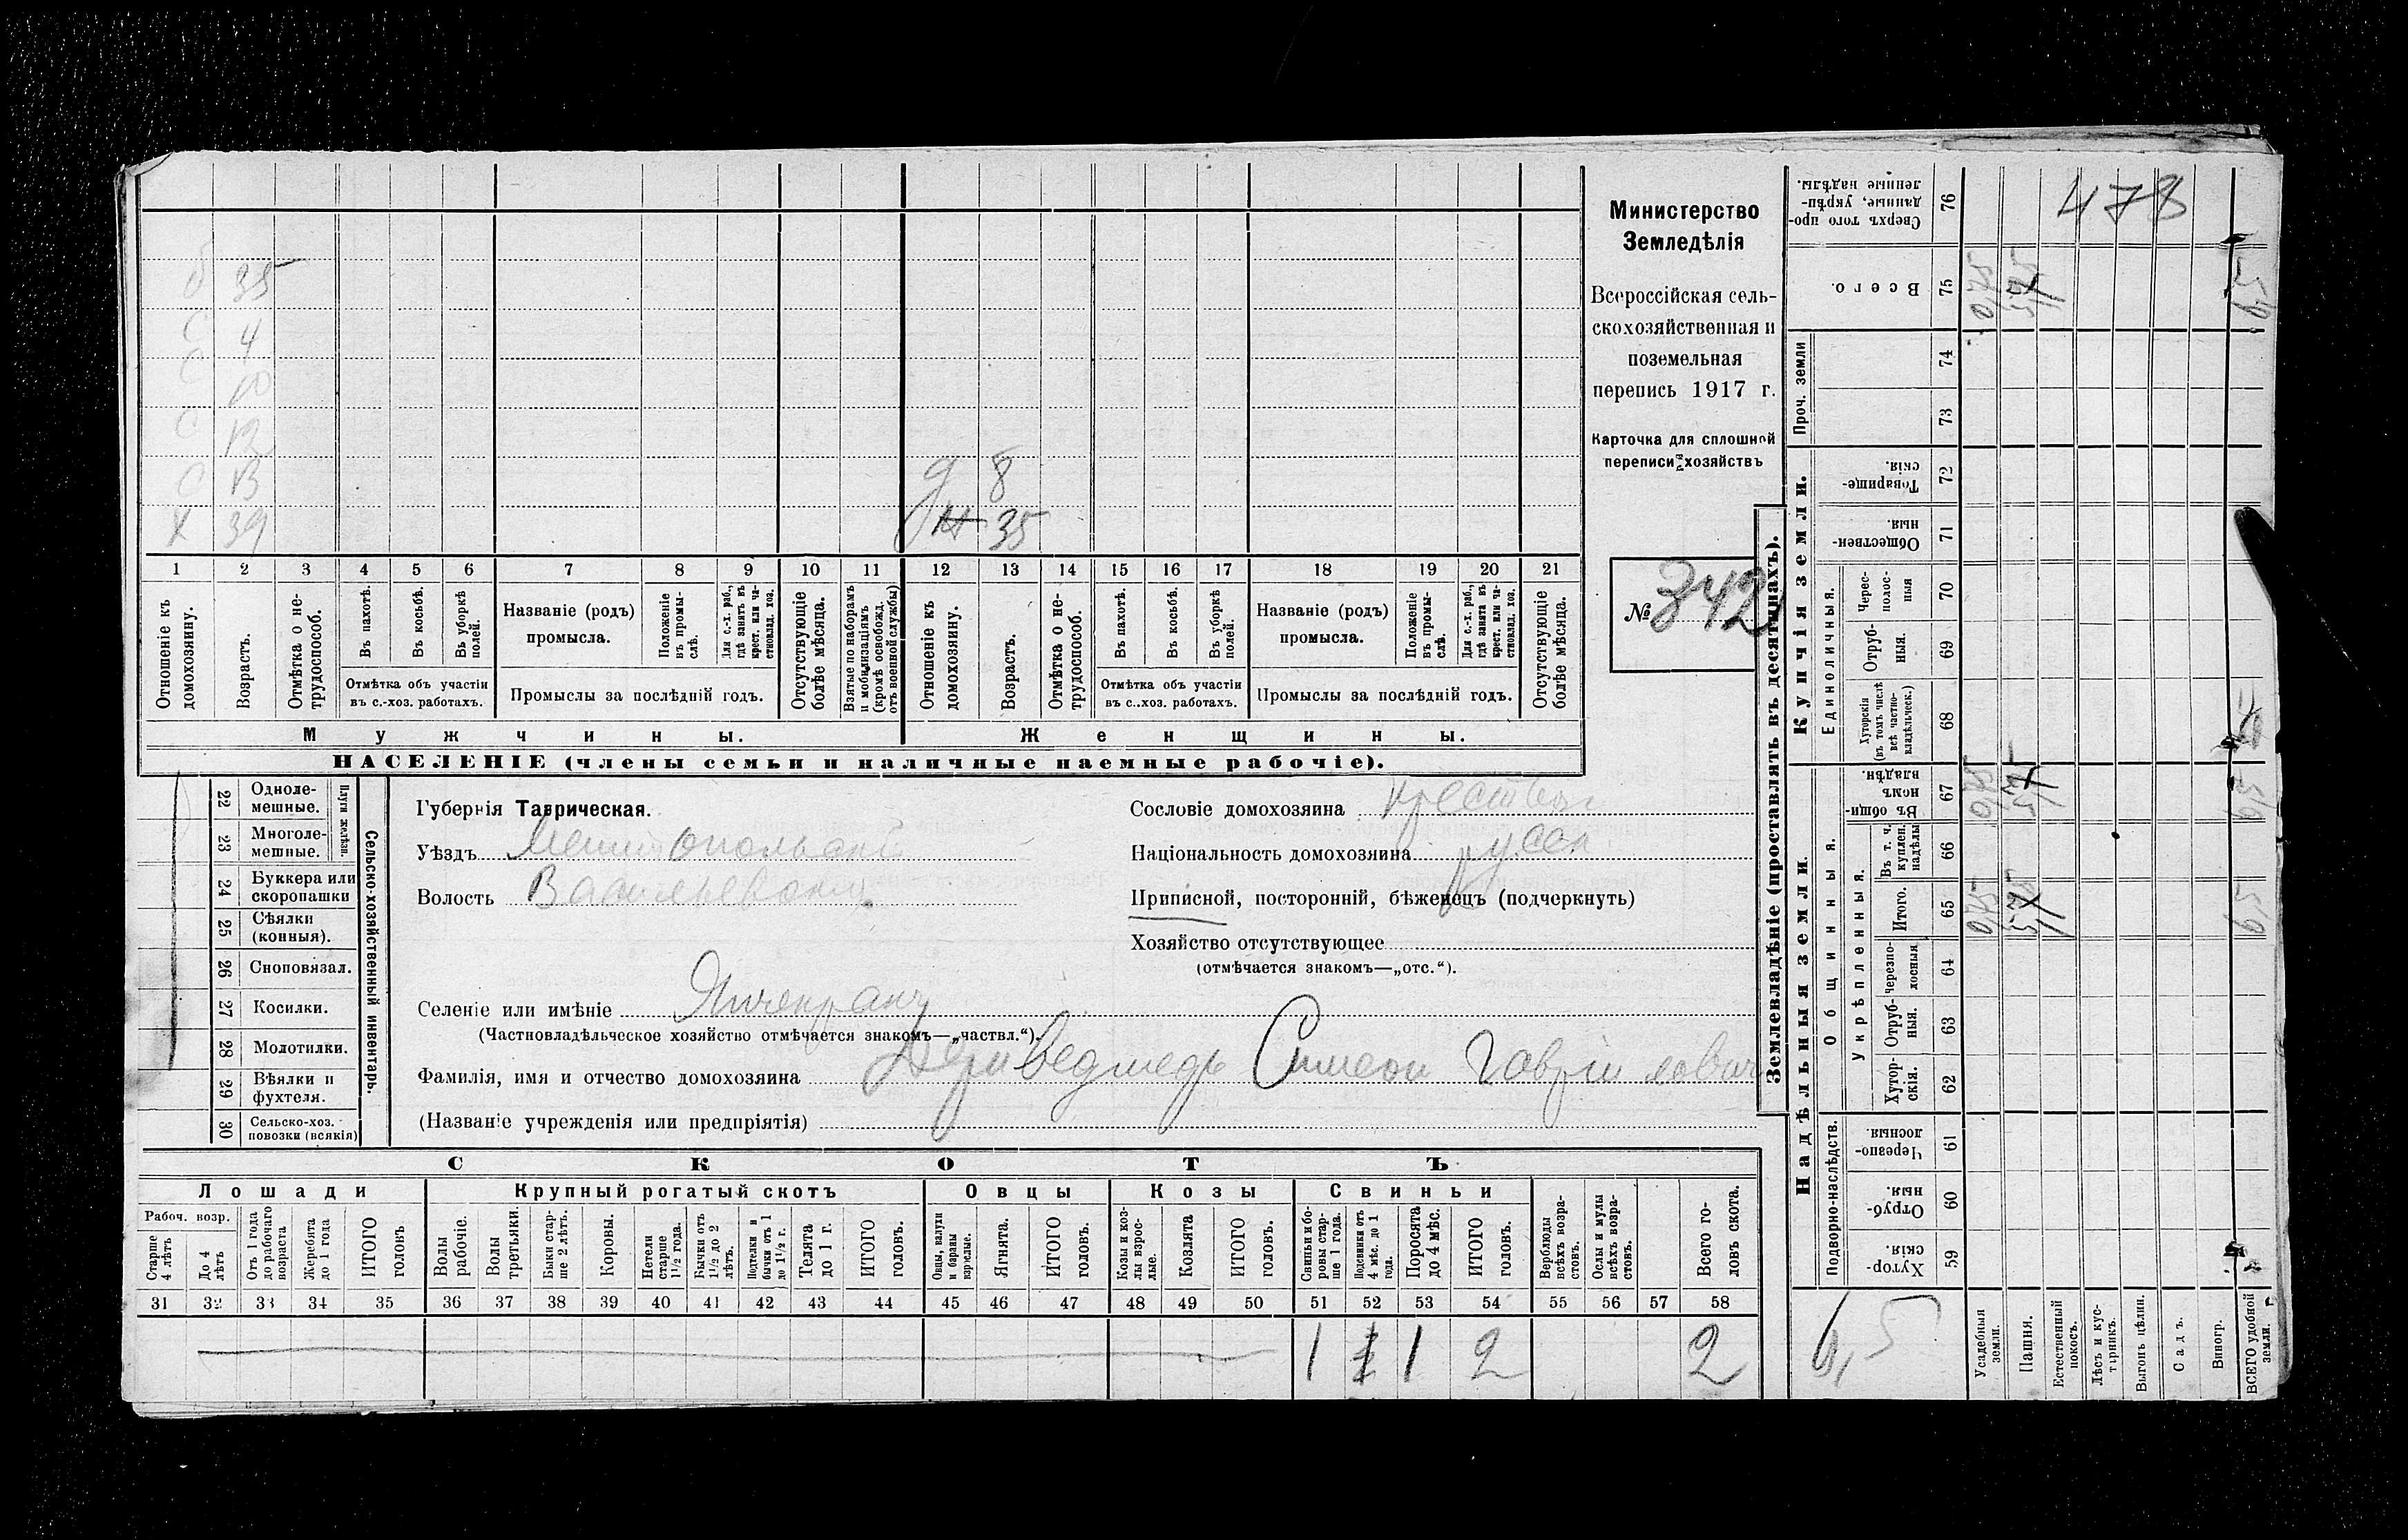 б 35
с 4
с 10
с 12
с 13
х 39
д 8
ж 35
1 2 3 4 5 6 7 8 9 10 11 12 13 14 15 16 17 18 19 20 21
Отношеніе къ домохозяину.
Возрастъ.
Отмѣтка о нетрудоспособ.
Въ пахотѣ.
Въ косьбѣ.
Въ уборкѣ полей.
Отмѣтка объ участіи
въ с.-хоз. работахъ.
Названіе (родъ)
промысла.
Положеніе въ промыслѣ.
Для с.-х. раб., гдѣ занятъ въ крест. или частновлад. хоз.
Промыслы за послѣдній годъ.
Отсутствующіе болѣе мѣсяца.
Взятые по наборамъ и мобилизаціямъ (кромѣ освобожд. отъ военной службы)
Отношеніе къ домохозяину.
Возрастъ.
Отмѣтка о нетрудоспособ.
Въ пахотѣ.
Въ косьбѣ.
Въ уборкѣ полей.
Отмѣтка объ участіи
въ с..хоз. работахъ.
Названіе (родъ)
промысла.
Положеніе въ промыслѣ.
Для с.-х. раб., гдѣ занята въ крест. или частновлад. хоз.
Промыслы за послѣдній годъ.
Отсутствующіе болѣе мѣсяца.
Мужчины. Женщины.
НАСЕЛЕНІЕ (члены семьи и наличные наемные рабочіе).
Министерство
Земледѣлія
Всероссійская сель-
скохозяйственная и
поземельная
перепись 1917 г.
Карточка для сплошной
переписи хозяйствъ
№ 342
22 Однолемешные.
23 Многолемешные.
Плуги желѣзн.
24 Буккера или скоропашки
25 Сѣялки (конныя).
26 Сноповязал.
27 Косилки.
28 Молотилки.
29 Вѣялки и фухтеля.
30 Сельско-хоз. повозки (всякія)
Сельско-хозяйственный инвентарь.
Губернія Таврическая.
Уѣздъ Мелитопольскій
Волость Васильевская
Селеніе или имѣніе Янчекракъ
(Частновладѣльческое хозяйство отмѣчается знакомъ—„частвл.“).
Фамилія, имя и отчество домохозяина Дериведмедь Симеон Гавріилович
(Названіе учрежденія или предпріятія)
Сословіе домохозяина крестьян
Національность домохозяина русск
Приписной, посторонній, бѣженецъ (подчеркнуть)
Хозяйство отсутствующее
(отмѣчается знакомъ—„отс.“).
СКОТЪ
Лошади Крупный рогатый скотъ Овцы Козы Свиньи
Рабоч. возр.
Старше 4 лѣтъ
До 4 лѣтъ
Отъ 1 года до рабочаго возраста
Жеребята до 1 года
ИТОГО головъ
Волы рабочіе.
Волы третьяки.
Быки старше 2 лѣтъ.
Коровы.
Нетели старше 1½ года.
Бычки отъ 1½ до 2 лѣтъ.
Подтелки и бычки отъ 1 до 1½ г.
Телята до 1 г.
ИТОГО головъ.
Овцы, валухи и бараны взрослые.
Ягнята.
ИТОГО головъ.
Козы и козлы взрослые.
Козлята
ИТОГО головъ.
Свиньи и боровы старше 1 года.
Подсвинки отъ 4 мѣс. до 1 года.
Поросята до 4 мѣс.
ИТОГО головъ.
Верблюды всѣхъ возрастовъ.
Ослы и мулы всѣхъ возрастовъ.
Всего головъ скота.
31 32 33 34 35 36 37 38 39 40 41 42 43 44 45 46 47 48 49 50 51 52 53 54 55 56 57 58
1 1 1 2 2
Землевладѣніе (проставлять въ десятинахъ).
Купчія земли.
Надѣльныя земли.
Сверхъ того проданные, укрѣпленные надѣлы. 76
478
Всего. 75
0,75
Проч. земли 74 73
Товарищескія. 72
Общественныя 71
Единоличныя.
Чересполосныя 70
Отрубныя. 69
Хуторскія (въ томъ числѣ всѣ частновладѣльческ.) 68
Общинныя.
Въ общинномъ владѣн. 67
0,75
Укрѣпленныя.
Въ т. ч. куплен. надѣлы 66
Итого. 65
0,75
Черезполосныя 64
Отрубныя. 63
Хуторскія. 62
Подворно-наслѣдств.
Черезполосныя. 61
Отрубныя. 60
Хуторскія. 59
6,5
Усадебныя земли.
Пашня.
Естественный покосъ.
Лѣсъ и кустарникъ.
Выгонъ цѣлин.
Садъ.
Виногр.
ВСЕГО удобной земли.